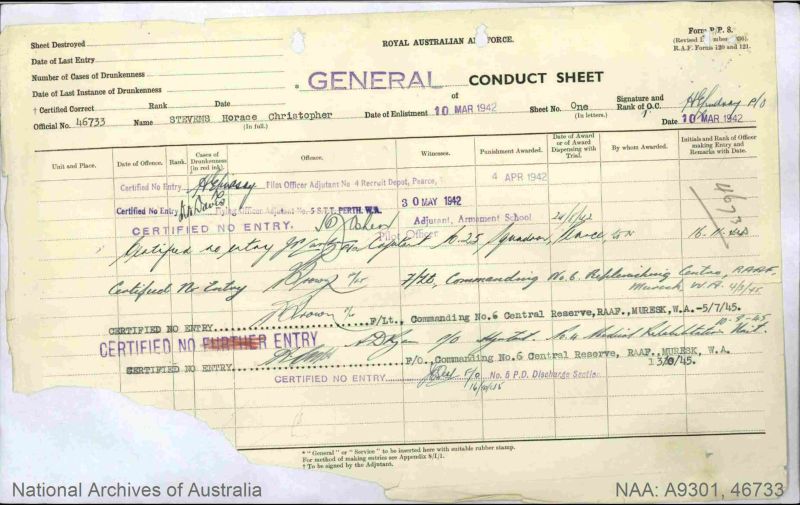 Form P/P. 8.
Sheet Destroyed
ROYAL AUSTRALIAN AIR FORCE.
R.A.F. Forms 120 and 121.
Date of Last Entry
Number of Cases of Drunkenness
Date of Last Instance of Drunkenness
* GENERAL CONDUCT SHEET
of
† Certified Correct Rank Date
Signature and Rank of O.C.
Official No. 46733 Name STEVENS Horace Christopher Date of Enlistment 10 MAR 1942 Sheet No. One Date 10 MAR 1942
(In full.) (In letters.)
Unit and Place. Date of Offence. Rank. Cases of Drunkenness (in red ink) Offence. Witnesses. Punishment Awarded. Date of Award or of Award Dispensing with Trial. By whom Awarded. Initials and Rank of Officer making Entry and Remarks with Date.
Certified No Entry Pilot Officer Adjutant No 4 Recruit Depot, Pearce, 4 APR 1942
Certified No Entry Flying Officer Adjutant No 5 S.T.T. PERTH. W.A. 30 MAY 1942
CERTIFIED NO ENTRY. Pilot Officer Adjutant, Armament School
4673
Certified no entry for Captain 25 Squadron, Pearce
Certified No Entry Brown F/Lt, Commanding No.6 Replenishing Centre, RAAF,
Muresk W.A. 4/3/45
CERTIFIED NO ENTRY Brown F/Lt., Commanding No.6 Central Reserve, RAAF., MURESK, W.A.-5/7/45.
CERTIFIED NO FURTHER ENTRY F/O Adjutant No 4 Medical Rehabilitation Unit.
CERTIFIED NO ENTRY F/O., Commanding No.6 Central Reserve, RAAF., MURESK, W.A.
CERTIFIED NO ENTRY F/O No. 5 P.D. Discharge Section
* "General" or "Service" to be inserted here with suitable rubber stamp.
For method of making entries see Appendix 8/I/1.
† To be signed by the Adjutant.
National Archives of Australia
NAA: A9301, 46733